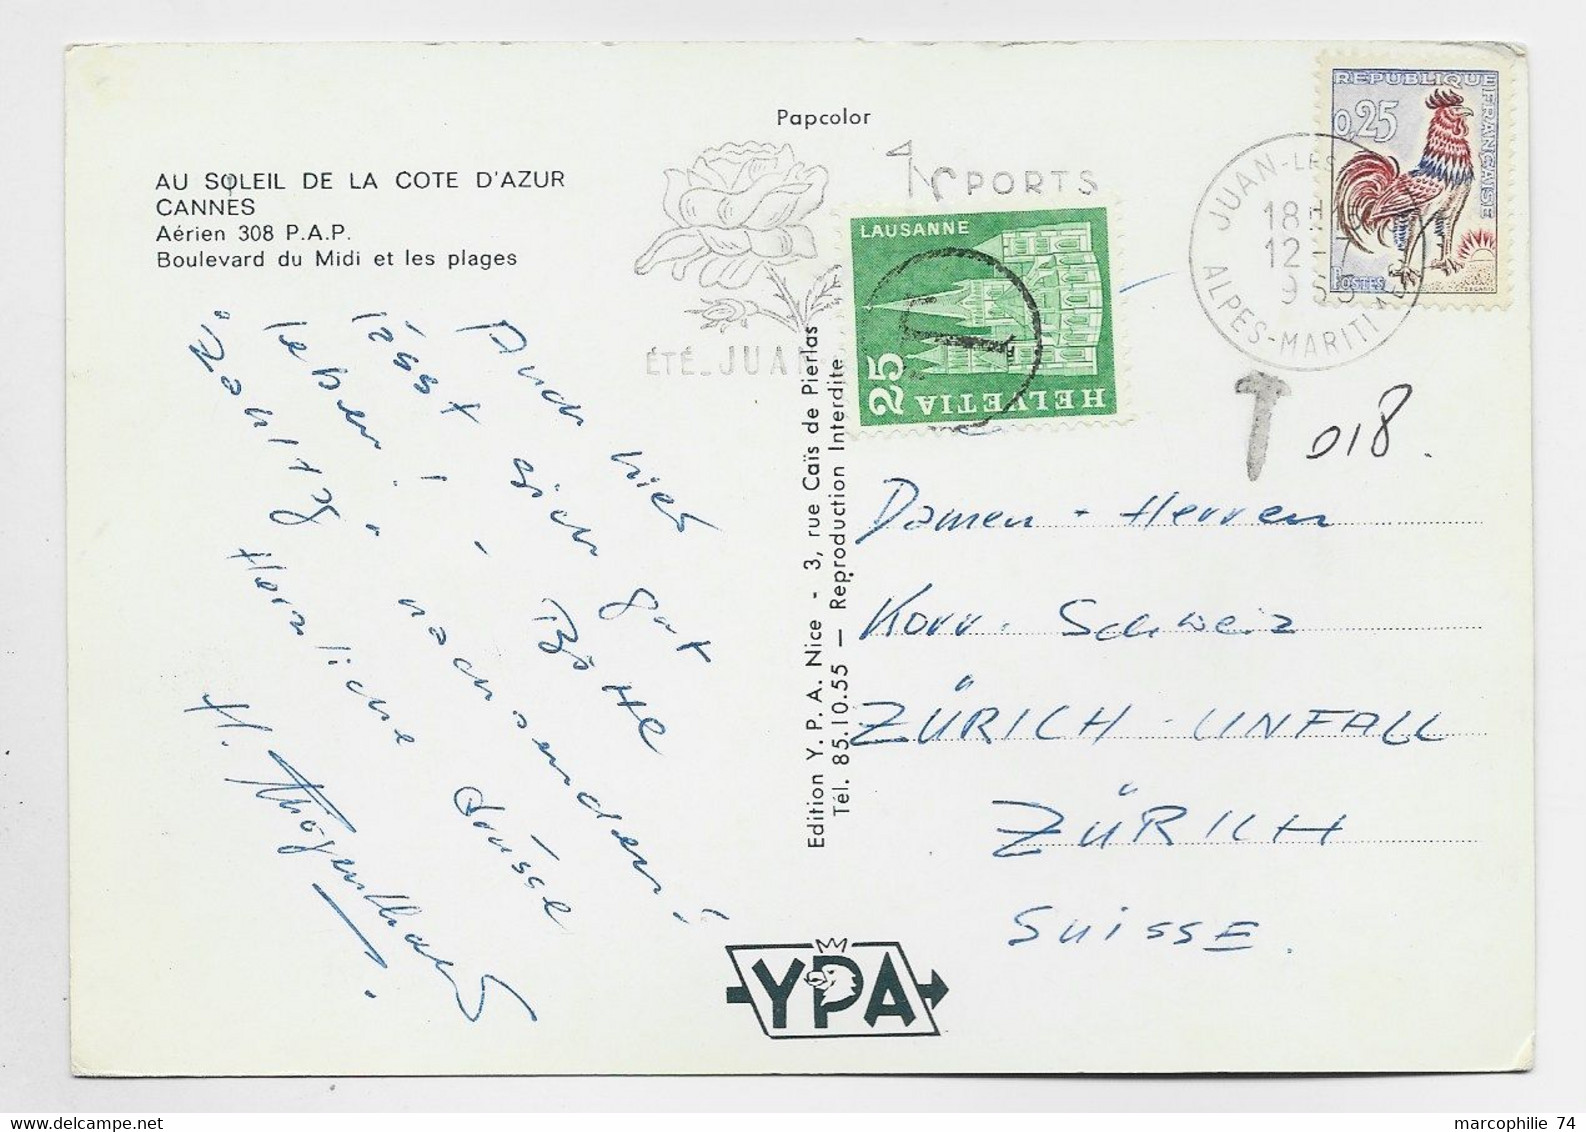 Papcolor
AU SOLEIL DE LA COTE D'AZUR
CANNES
Aérien 308 P.A.P.
Boulevard du Midi et les plages
SPORTS
ÉTÉ_JUAN
LAUSANNE
25
HELVETIA
REPUBLIQUE FRANÇAISE
0,25
POSTES
JUAN-LES
18H
12-7
ALPES-MARITI
T
018.
Auch hier
lässt sich gut
leben! - Bitte
"Zahltag" nachsenden!
Herzliche Grüsse
Damen + Herren
Korr. Schweiz
ZÜRICH-UNFALL
ZÜRICH
SUISSE.
Edition Y. P. A. Nice - 3, rue Caïs de Pierlas
Tél. 85.10.55 — Reproduction Interdite
YPA
marcophilie 74